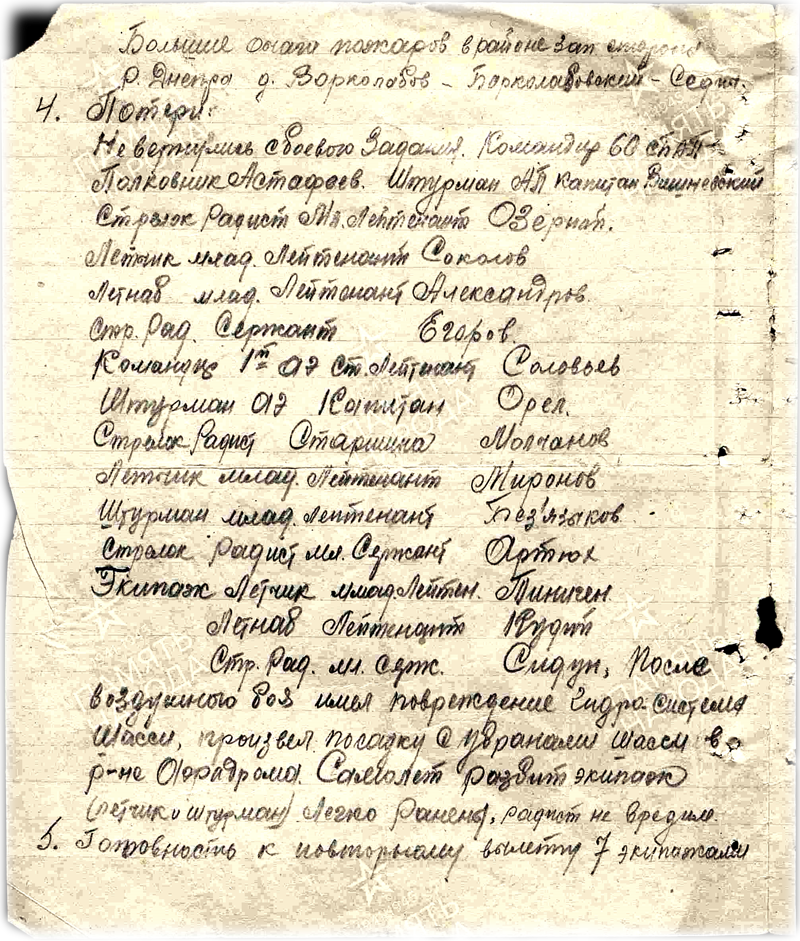 Большие очаги пожаров в районе зап стороны
р. Днепра д. Ворколобов – Борколабовский –
4. Потери:
Не вернулись с боевого задания. Командир 60 сп АП
Полковник Астафаев. Штурман АП Капитан Вишневский
Стрелок Радист Мл. Лейтенант Озерный.
Летчик млад. Лейтенант Соколов
Летнаб млад. Лейтенант Александров.
Стр. Рад. Сержант Егоров.
Командир 1й аэ Ст. Лейтенант Соловьев
Штурман аэ Капитан Орел.
Стрелок Радист Старшина Молчанов
Летчик млад. Лейтенант Миронов
Штурман млад. Лейтенант Без'языков
Стрелок радист мл. Сержант Артюх
Экипаж Летчик млад. Лейтен. Пиничен
Летнаб Лейтенант Кудий
Стр. Рад. мл. серж. Сидун, После
воздушного боя имел повреждение гидро-система
Шасси, произвел посадку с убранами шасси в
р-не Аэрадрома. Самолет разбит экипаж
(летчик и штурман) Легко Ранены, радист не вредим.
5. Готовность к повторному вылету 7 экипажами
ПАМЯТЬ НАРОДА